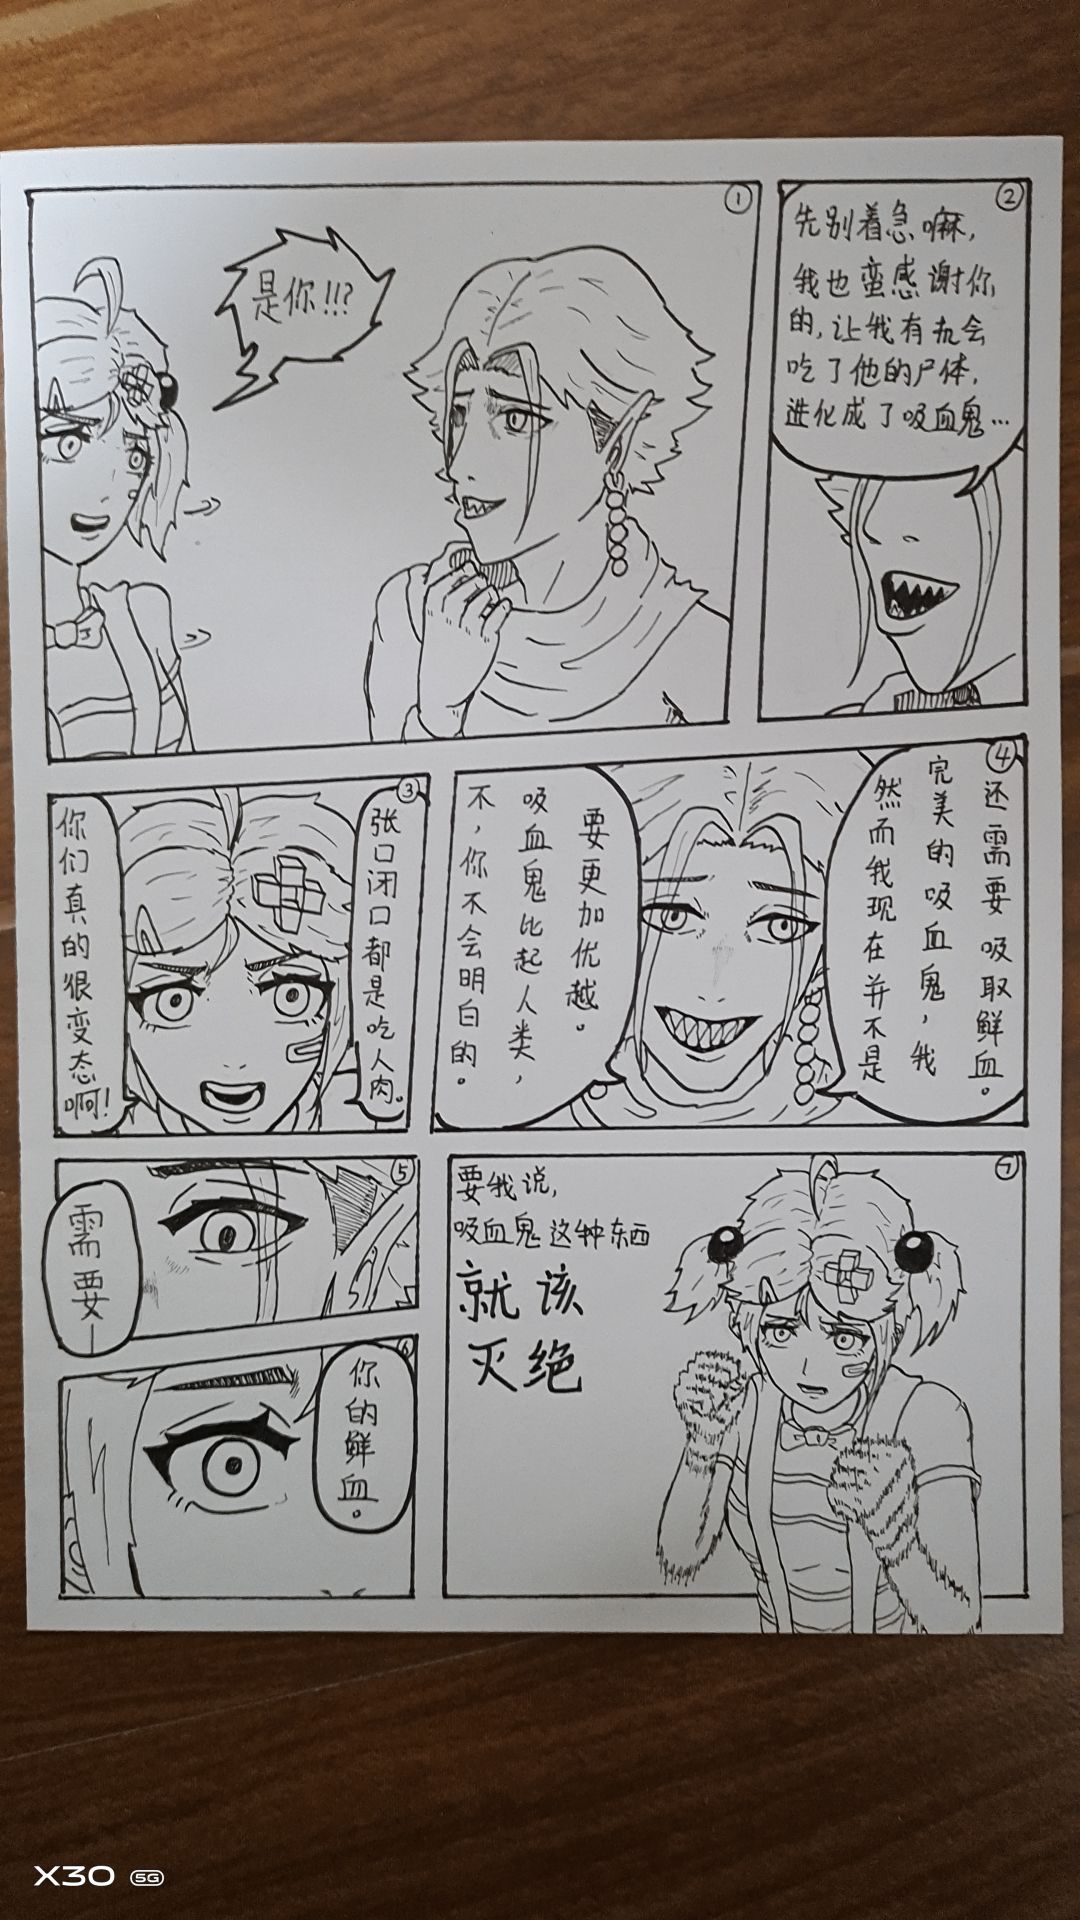 ①
是你!!!?
②
先别着急嘛,
我也蛮感谢你
的,让我有机会
吃了他的尸体,
进化成了吸血鬼…
③
张口闭口都是吃人肉。
你们真的很变态啊!
④
然而我现在并不是
完美的吸血鬼,我
还需要吸取鲜血。
不,你不会明白的。
吸血鬼比起人类,
要更加优越。
⑤
需要—
⑥
你的鲜血。
⑦
要我说,
吸血鬼这种东西
就该
灭绝
X30 5G